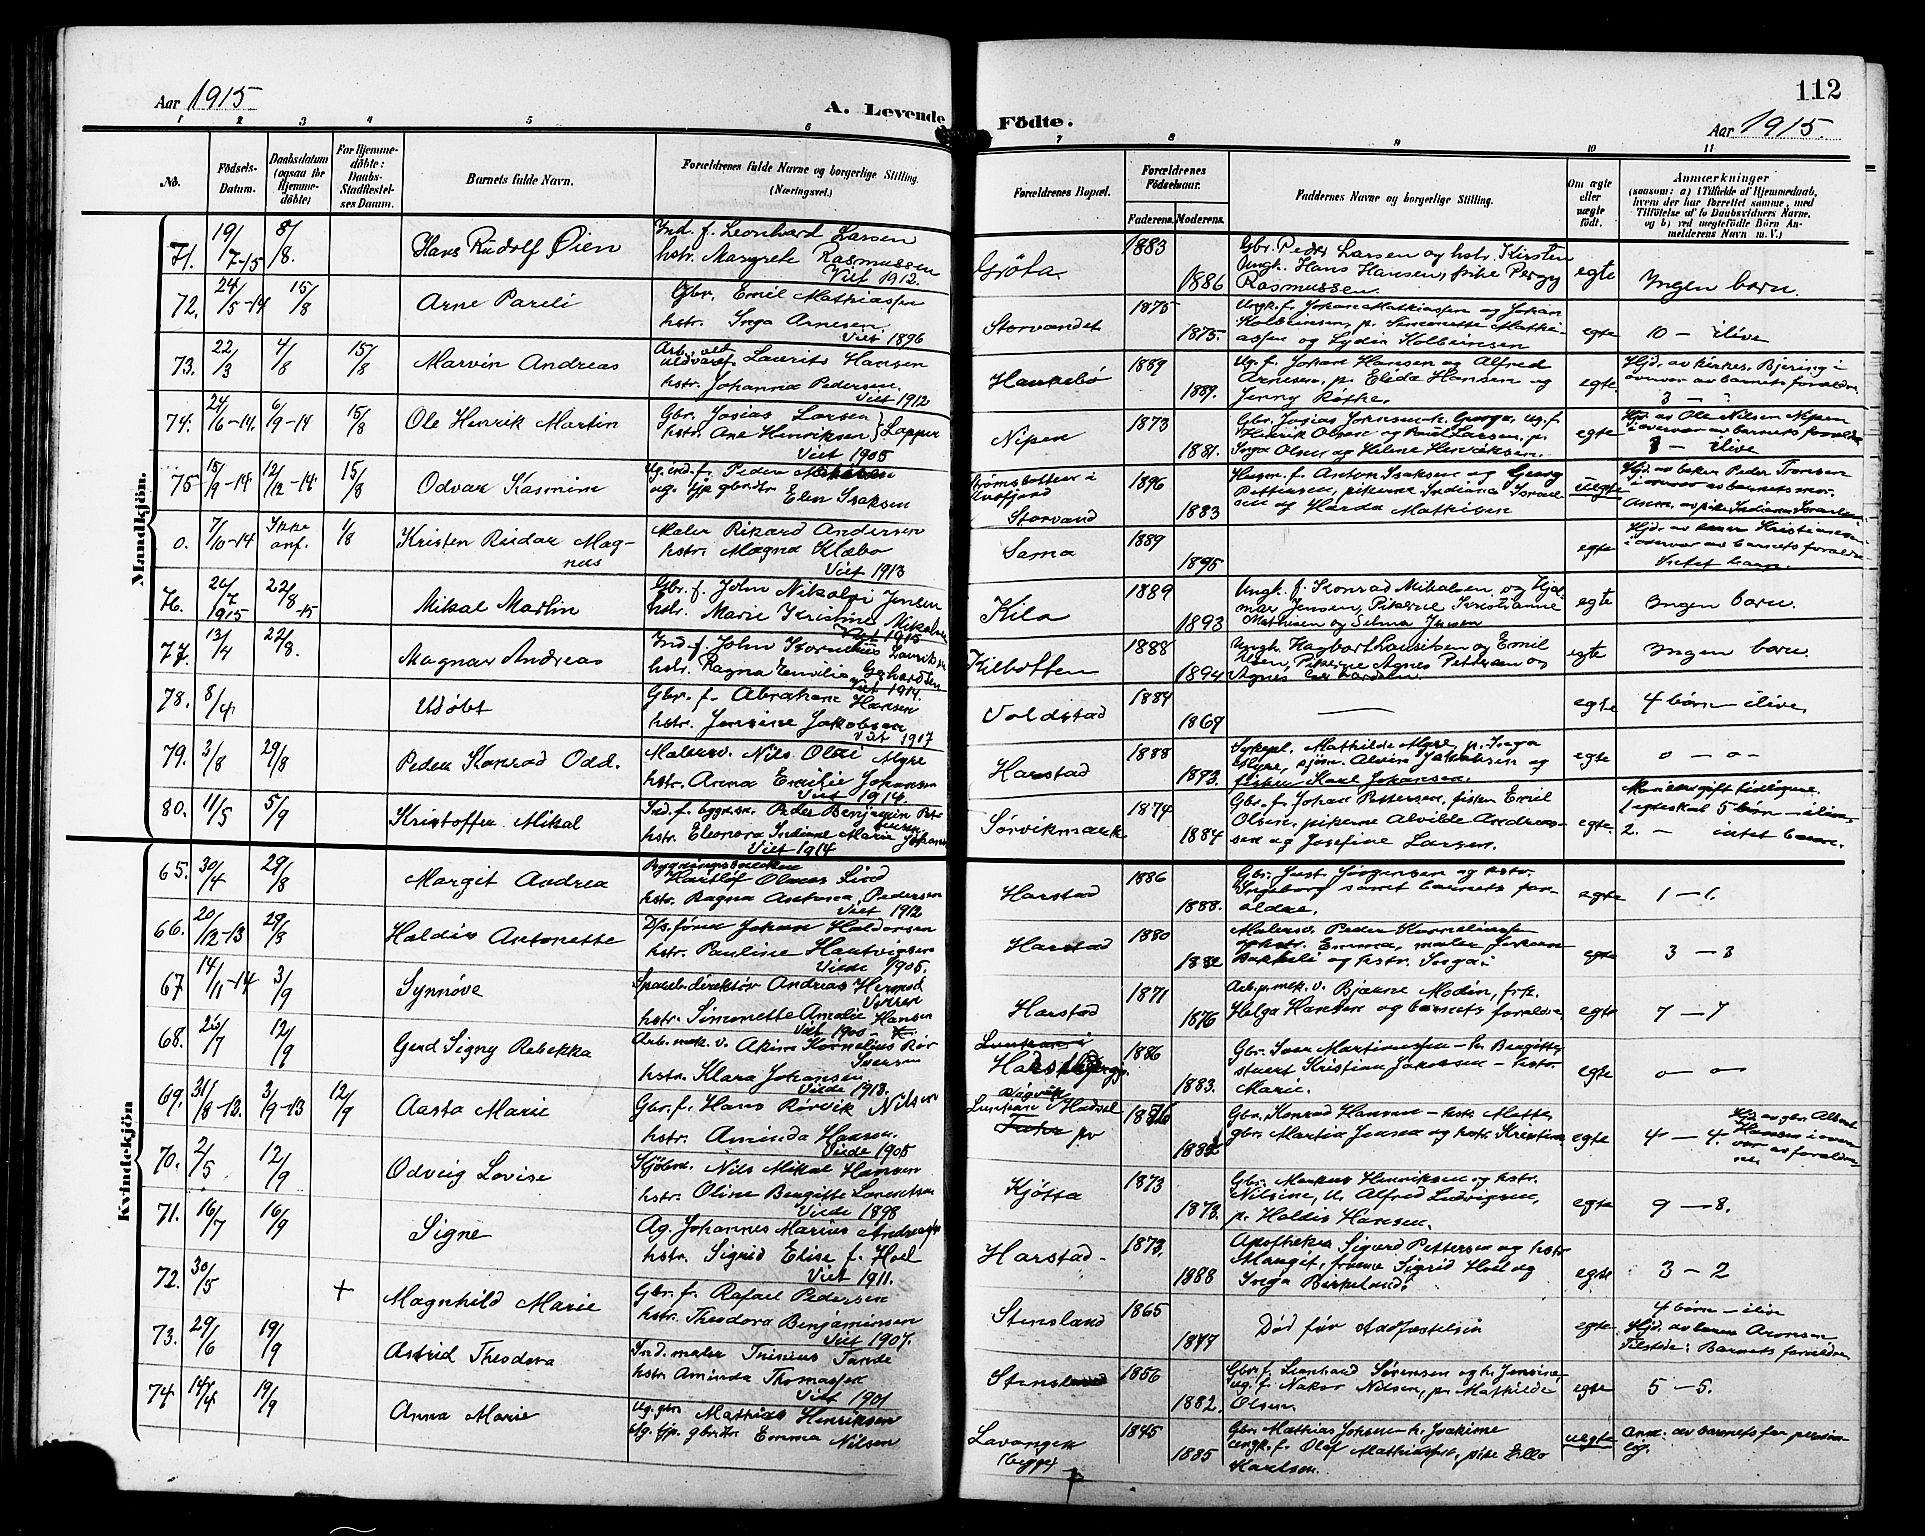 Aar 1915
A. Levende
Födte.
112
Aar 1915.
1 2 3 4 5 6
7 8 9 10 11
No.
Födsels-Datum.
Daabsdatum (ogsaa for Hjemmedöbte)
For Hjemmedöbte: Daabs-Stadfæstelses Datum.
Barnets fulde Navn.
Forældrenes fulde Navne og borgerlige Stilling. (Næringsvei.)
Forældrenes Bopæl.
Forældrenes Födselsaar.
Faderens. Moderens.
Faddernes Navne og borgerlige Stilling.
Om ægte eller uægte födt.
Anmærkninger
(saasom: a) i Tilfælde af Hjemmedaab, hvem der har forrettet samme, med Tilföielse af to Daabsvidners Navne, og b) ved uægtefödte Börn Anmelderens Navn m. V.)
Mandkjön.
71. 19/7-15 8/8. Hans Rudolf Öien
Ind. f. Leonhard Larsen
hstr. Margrete Rasmussen
Viet 1912.
Gjöta 1883 1886
Gbr. Peder Larsen og hstr. Kirsten
Ungk. Hans Hansen, frike
Rasmussen.
egte Ingen barn.
72. 24/5-14 15/8 Arne Pareli
Gbr. Emil Mathiassen
hstr. Inga Arnesen.
Viet 1896
Storvandet 1875 1875.
Ungk. f. Johan Mathiassen og Johan
Kolbeinsen, p. Simonette Mathi-
assen og Lydia Kolbeinsen
egte 10 - ilive
73. 22/3 4/8 15/8 Marvin Andreas
Laurits Hansen
hstr. Johanna Pedersen.
Viet 1912
Haukebö 1889 1889.
Ug. f. Johan Hansen og Alfred
Arnesen, p. Elida Hansen og
Jenny Röthe.
egte
Hjd. av kirkes. Bjering i
overvær av barnets forældre
3 - "
74. 24/6-14. 6/9-14 15/8 Ole Henrik Martin
Gbr. Josias Larsen } Lapper
hstr. Ane Henriksen
Viet 1905
Nipen 1873 1881.
Gbr. Josias Johnsen h. ug. f.
Henrik Olsen og Larsen, p.
Inga Olsen og Helene Henriksen.
egte
Hjd. av Ole Nilsen Nipen
i overvær av barnets forældre
- ilive
75 15/9-14 12/12-14 15/8 Odvar Kasmine
Ug. ind. f. Peder
ug. tjp. gbrdtr Elen Isaksen
Storvand 1896 1883
Husm. f. Anton Isaksen og Georg
Pettersen, pikerne Indiana Israel-
sen og Harda Mathisen
uegte
Hjd. av Peder Tronsen
i overvær av barnets mor.
0. 7/10-14 Ikke anf. 1/8 Kristen Reidar Mag-
nus
Maler Rikard Andersen
hstr. Magna Klæbo
Viet 1913
Sama 1889 1895
egte
Hjd. av Kristiansen
i overvær av barnets forældre
Intet barn.
76. 20/7 1915 22/8-15 Mikal Martin
Gbr. f. John Nikolai Jensen
hstr. Marie Kristine Mikalsen
Viet 1915
Kila 1889 1893
Ungk. f. Konrad Mikalsen og Hjal
mar Jensen, Pikerne Kristianne
Mathisen og Selma Jensen
egte Ingen barn.
77. 13/4 22/8. Magnar Andreas
Ind. f. John Kornelius Lauritsen
hstr. Ragna Emilie Gerhardsen
Viet 1914.
Kilbotten 1888 1894
Ungk. Hagbart og Emil
Olsen, Pikerne Agnes Pettersen og
Agnes
egte Ingen barn.
78. 8/4. Udöbt
Gbr. f. Abraham Hansen
hstr. Jensine Jakobsen
Viet 1907
Voldstad 1884 1869
— egte 4 börn ilive
79. 3/8 29/8 Peder Konrad Odd.
Malersv. Nils Olai Myre
hstr. Anna Emilie Johansen
Viet 1914.
Harstad 1888 1893.
Sykepl. Mathilde Myre, p. Inga
Myre, sjöm. Alvin Jakobsen og
fisker Karl Johansen.
egte 0 - 0 -
80. 11/5 5/9 Kristoffer Mikal
Ind. f. Peder Benjamin
hstr. Eleonora Indiane Marie Johans
Viet 1914
Sörvikmark 1874 1884
Gbr. f. Johan Pettersen, fisker Emil
Olsen, pikerne Alvilde Andreas-
sen og Josefine Larsen.
egte.
tidligere.
1 egteskab 5 börn - ilive
2. - intet barn.
Kvindekjön
65. 30/4 29/8 Margit Andrea
Bygningssnekker
Olaves Lind
hstr. Ragna Antona Pedersen
Viet 1912
Harstad 1886 1888.
Gbr. Just Jörgensen og hstr.
Ingeborg samt barnets for-
ældre.
egte 1 - 1.
66. 20/12-13 29/8 Haldis Antonette
Johan Haldorsen
hstr. Pauline Hartvigsen
Viede 1905.
Harstad 1880
Malersv. Peder Korneliussen
og hstr. Emma, maler Johan
Bakkeli og hstr. Inga.
egte 3 - 3
67 14/11-14 3/9 Synnöve
Spareb. direktör Andreas Hermod
hstr. Simonette Amalie Hansen
Viet 1900
Harstad 1871 1876
Arb. p. mek. v. Bjarne Modin, frk.
Helga Hansen og barnets forældre
egte 7 - 7
68. 26/7 12/9 Gerd Signy Rebekka
Arb. mek. v. Akim Kornelius Rör
Iversen
hstr. Klara Johansen
Viede 1913.
1886 1883.
Gbr. Martinussen - h. Bergitte,
stuert Kristian Jakobsen - hstr.
Marie.
egte 0 - 0
69. 31/8-13. 3/9-13 12/9 Aasta Marie
Gbr. f. Hans Rörvik Nilsen
hstr. Aminda Hansen
Viede 1905
Gbr. Konrad Hansen - hstr. Mette
gbr. Martin Jensen og hstr. Kristina
egte 4 - 4.
Hjd. av gbr. Albert
Hansen i over-
vær av forældre-
70. 2/5 12/9 Odveig Lovise
Nils Mikal Hansen
hstr. Oline Bergitte Lorentsen
Viede 1898
Kjötta 1873 1873.
Gbr. Markus Henriksen og hstr.
Nilsine, u. Alfred Ludvigsen,
p. Haldis Hansen.
egte 9 - 8.
71. 16/7 16/9 Signe
Ag. Johannes Marius Andreassen
hstr. Sigrid Elise f. Hoel
Viet 1911.
Harstad 1873. 1888
Apotheker Sigurd Pettersen og hstr
Margit, fruerne Sigrid Hoel og
Inga Birkeland.
egte 3 - 2
72. 30/5 + Magnhild Marie
Gbr. f. Rafael Pedersen
hstr. Theodora Benjaminsen
Viet 1907.
Stensland 1865 1877
Död för stadfæstelsen
egte
4 börn - ilive
Hjd. av Aronsen
Tilstede: Barnets forældre
73. 29/6 19/9 Astrid Theodora
Ind. maler Trinius Tande
hstr. Aminda Thomassen
Viet 1901
Stensland 1856 1882.
Gbr. f. Leonhard Sörensen og h. Jensine
ug. f. Nakor Nilsen, p. Mathilde
Olsen.
egte 5 - 5.
74 14/4 19/9 Anna Marie
Ug. gbr. Mathias Henriksen
Ug. tjp. gbrdtr. Emma Nilsen
Lavangen
(begge) 1845 1885
Gbr. Mathias Johsen - h. Joakime
ungk. f. Olaf Mathiassen, pike Ella
Karlsen.
uegte
Anm. av barnets far person-
lig.